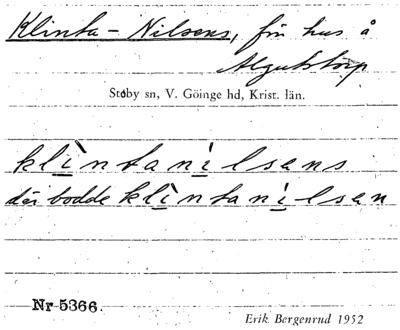 Klinta-Nilsens, fin hus å
Algutstorp
Stoby sn, V. Göinge hd, Krist. län.
klì̱ntani̱̍lsens
där bodde klì̱ntani̱̍lsen
Nr 5366.
Erik Bergenrud 1952